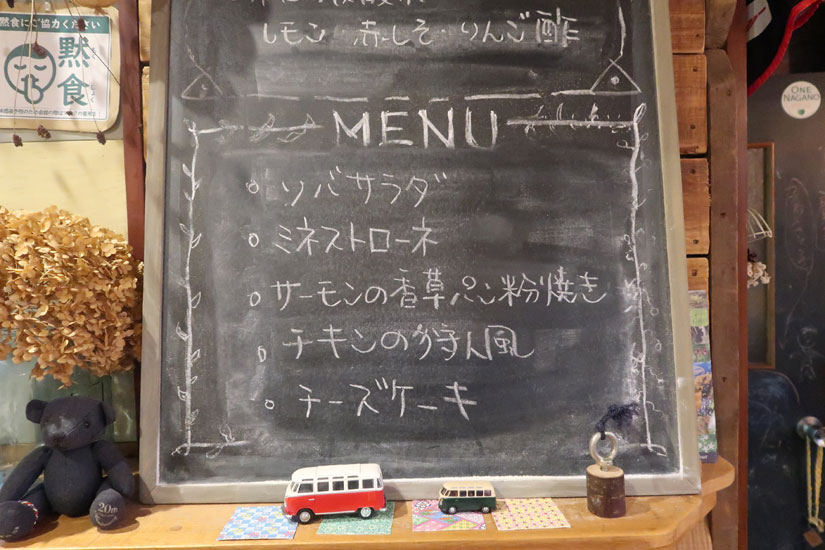 黙食にご協力ください
黙食
もく
しょく
レモン・赤しそ・りんご酢
MENU
ソバサラダ
ミネストローネ
サーモンの香草パン粉焼き
チキンの狩人風
チーズケーキ
ONE
NAGANO
20th